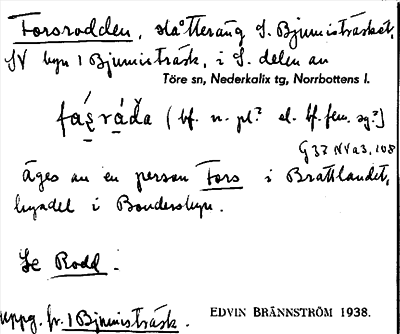 Forsrodden, slåtteräng S. Bjumisträsket,
SV byn 1 Bjumisträsk, i S. delen av
Töre sn, Nederkalix tg, Norrbottens l.
(bf. n. pl? el. bf. fem. sg?)
G 37 NV a3, 108
Äges av en person Fors i Brattlandet,
byadel i Bondersbyn.
Se Rodd.
uppg. fr. 1 Bjumisträsk.
EDVIN BRÄNNSTRÖM 1938.